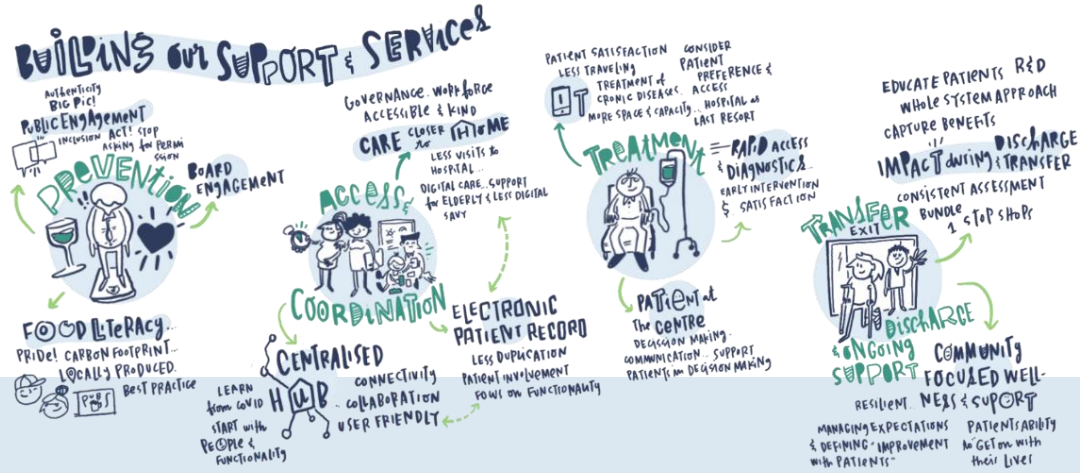 BUILDING OUR SUPPORT & SERVICES
AUTHENTICITY
BIG PIC!
PUBLIC ENGAGEMENT
INCLUSION ACT! STOP
ASKING for PERMI
SSION
PREVENTION
BOARD
ENGAGEMENT
FOOD LITERACY...
PRIDE! CARBON FOOTPRINT...
LOCALLY PRODUCED.
BEST PRACTICE
GOVERNANCE. WORKFORCE
ACCESSIBLE & KIND
CARE CLOSER to HOME
LESS VISITS to
HOSPITAL...
DIGITAL CARE.. SUPPORT
for ELDERLY & LESS DIGITAL
SAVY
ACCESS &
COORDINATION
CENTRALISED
HUB
LEARN
from COVID
START with
PEOPLE &
FUNCTIONALITY
CONNECTIVITY
.. COLLABORATION
USER FRIENDLY
ELECTRONIC
PATIENT RECORD
LESS DUPLICATION
PATIENT INVOLVEMENT
FOUS on FUNCTIONALITY
PATIENT SATISFACTION
LESS TRAVELING
TREATMENT of
CRONIC DISEASES.
MORE SPACE & CAPACITY..
IT
CONSIDER
PATIENT
PREFERENCE &
ACCESS
HOSPITAL as
LAST RESORT
TREATMENT
RAPID ACCESS
DIAGNOSTICS..
EARLY INTERVENTION
& SATISFACTION
PATIENT at
The CENTRE
DECISION MAKING.
COMMUNICATION.. SUPPORT
PATIENTS in DECISION MAKING
EDUCATE PATIENTS R&D
WHOLE SYSTEM APPROACH
CAPTURE BENEFITS
IMPACT during DISCHARGE & TRANSFER
CONSISTENT ASSESSMENT
BUNDLE
1 STOP SHOPS
TRANSFER
EXIT
DISCHARGE
& ONGOING
SUPPORT
COMMUNITY
FOCUSED WELL-
NESS & SUPORT
RESILIENT..
MANAGING EXPECTATIONS
& DEFINING "IMPROVEMENT
with PATIENTS"
PATIENTS ABILITY
to "GET ON with
their Lives